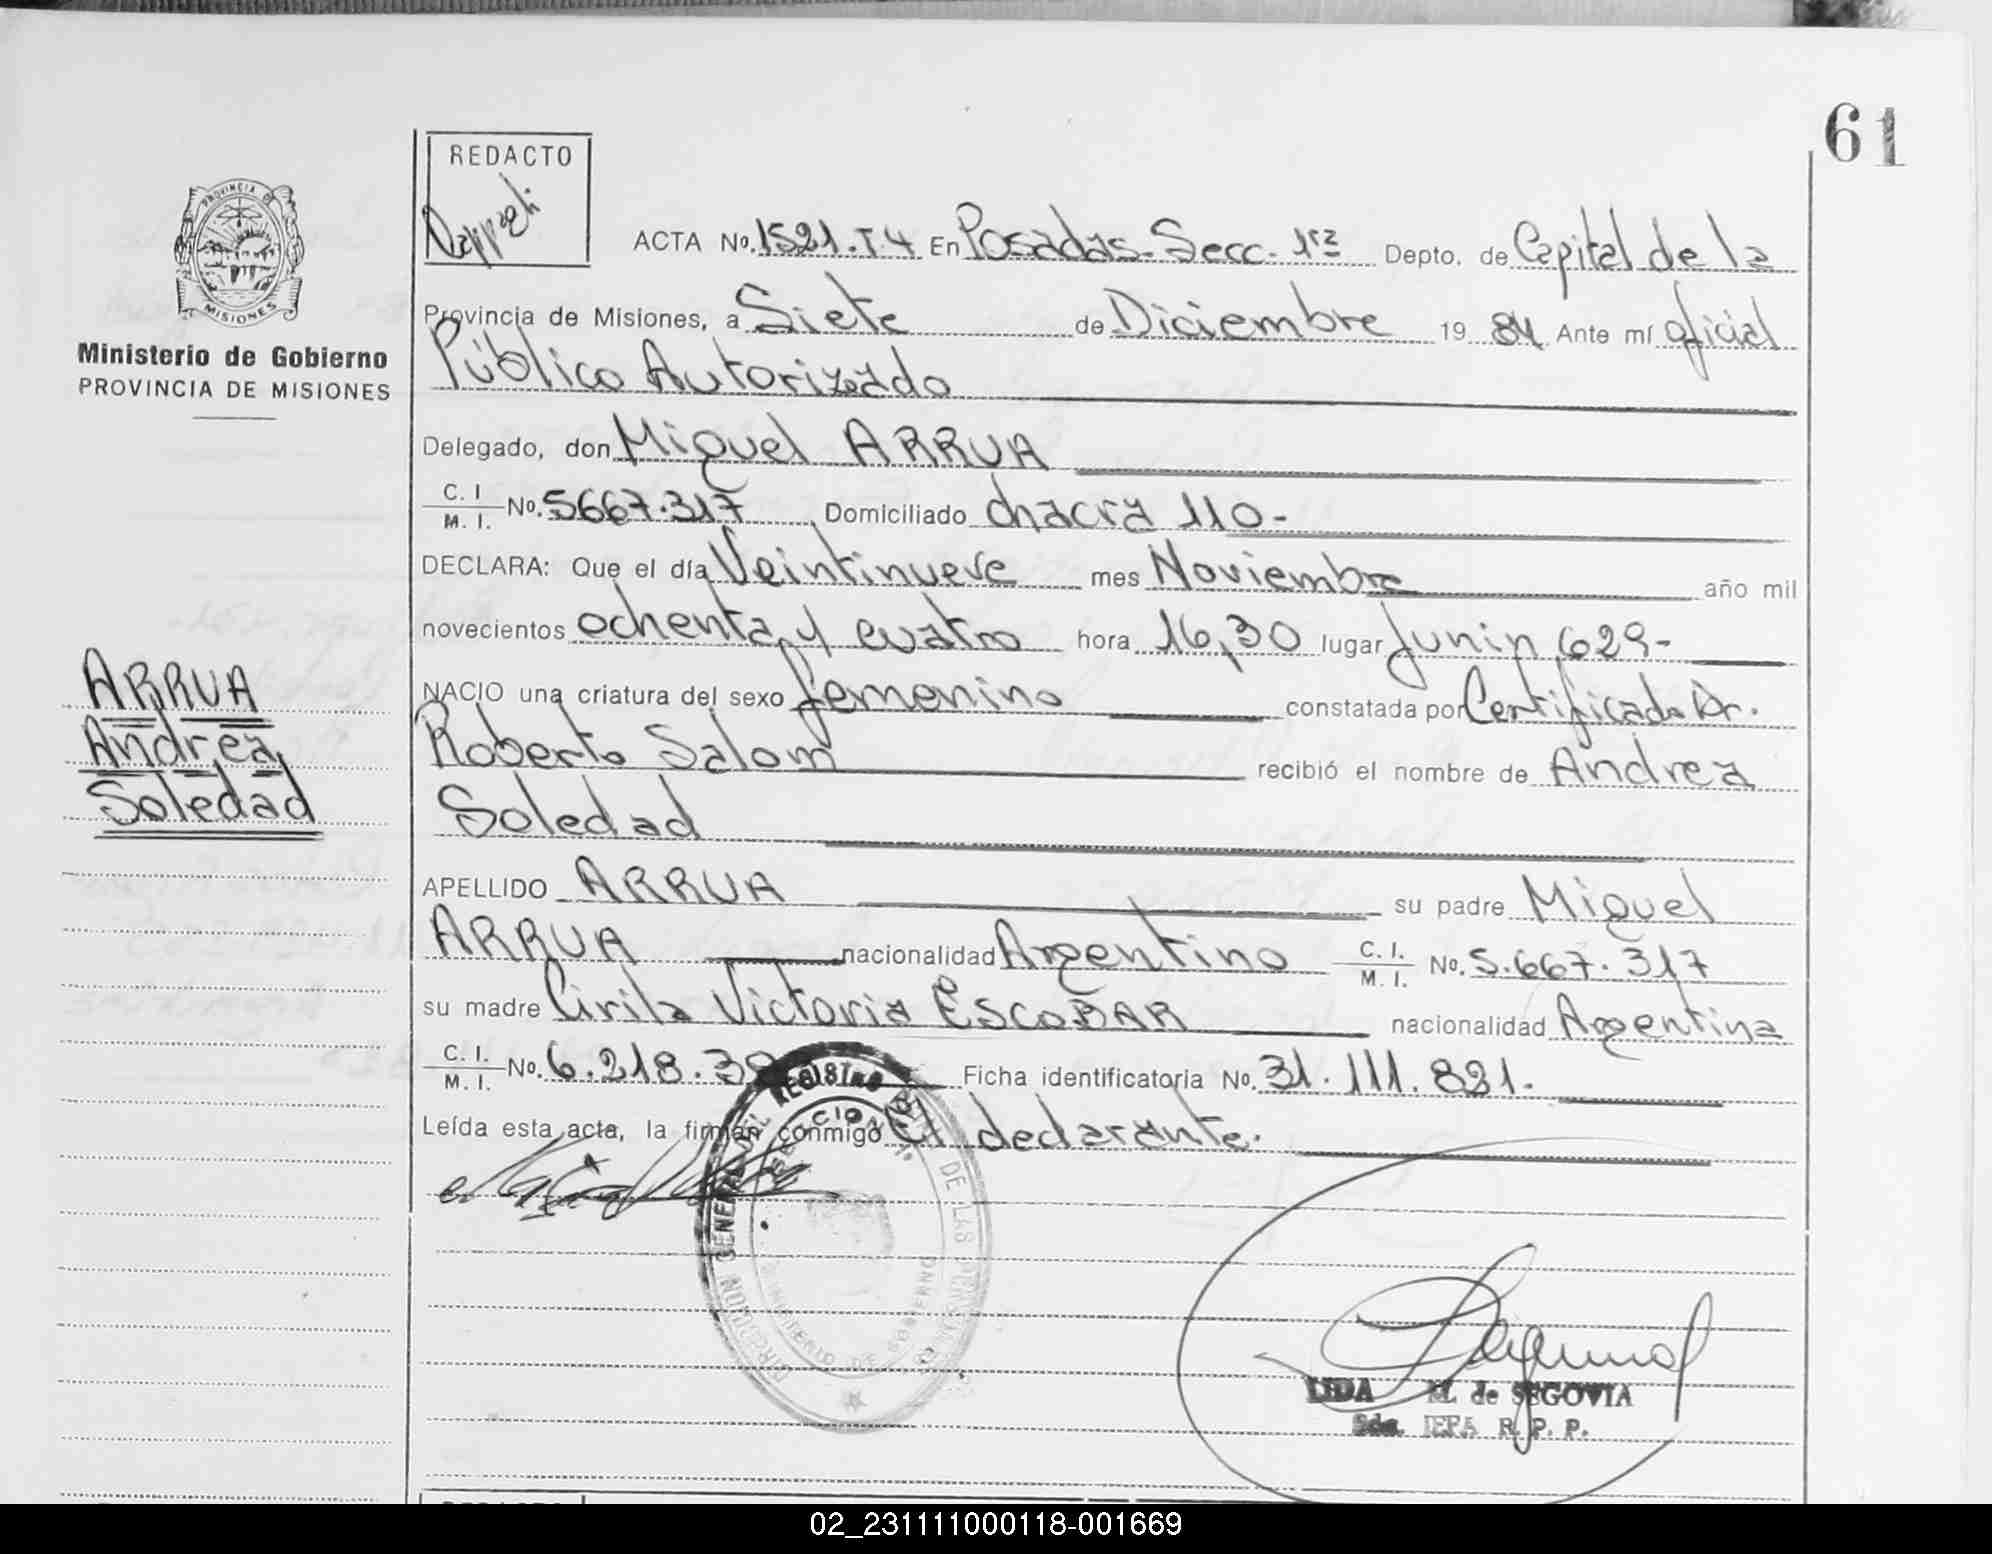 61
REDACTO
PROVINCIA DE
MISIONES
Ministerio de Gobierno
PROVINCIA DE MISIONES
ACTA No. 1521.T4 En Posadas-Secc. 1ra Depto. de Capital de la
Provincia de Misiones, a Siete de Diciembre 19 84 Ante mí oficial
Público Autorizado
Delegado, don Miguel ARRUA
C. I. / M. I. No. 5667.317 Domiciliado chacra 110-
DECLARA: Que el día Veintinueve mes Noviembre año mil
novecientos ochenta y cuatro hora 16,30 lugar Junin 629-
NACIO una criatura del sexo femenino constatada por Certificado Dr.
Roberto Salom recibió el nombre de Andrea
Soledad
ARRUA
Andrea
Soledad
APELLIDO ARRUA su padre Miguel
ARRUA nacionalidad Argentino C. I. / M. I. No. 5.667.317
su madre Cirila Victoria ESCOBAR nacionalidad Argentina
C. I. / M. I. No. 6.218.3 Ficha identificatoria No. 31.111.821.
Leída esta acta, la firman conmigo El declarante.
DIRECCION GENERAL DEL REGISTRO DE LAS PERSONAS
SECCION 1a
MINISTERIO DE GOBIERNO
LIDA M. de SEGOVIA
R. P. P.
02_231111000118-001669